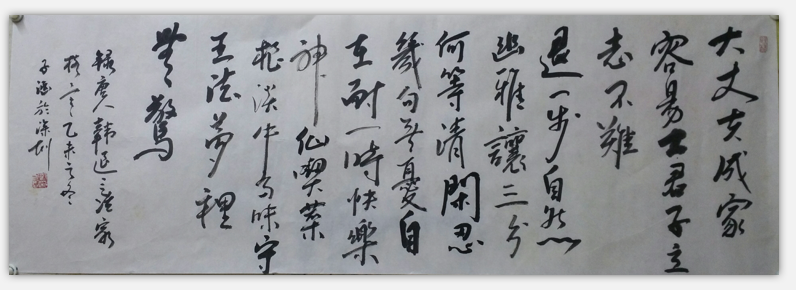 大丈夫成家
容易士君子立
志不難
退一步自然
幽雅讓三分
何等清閑忍
幾句無憂自
在耐一時快樂
神仙喫菜
根淡中有味守
王法夢裡
無驚
錄唐人韓退之治家
格言乙未之冬
子於深圳